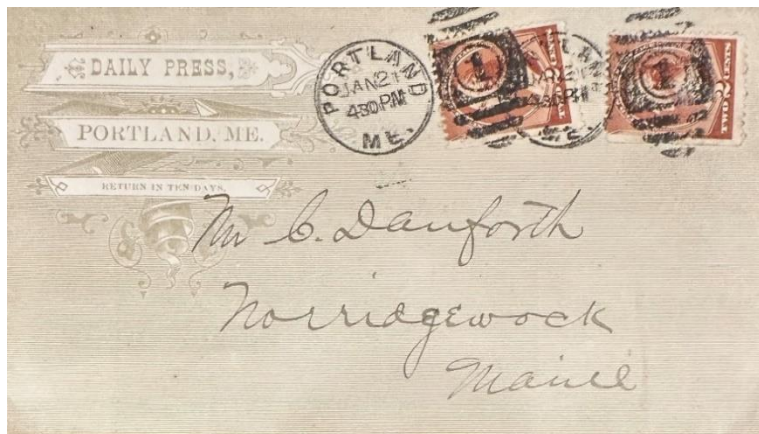 DAILY PRESS,
PORTLAND, ME.
RETURN IN TEN DAYS.
PORTLAND
JAN 21
430 PM
ME.
1
1
TWO CENTS
2
Mr C. Danforth
Norridgewock
Maine